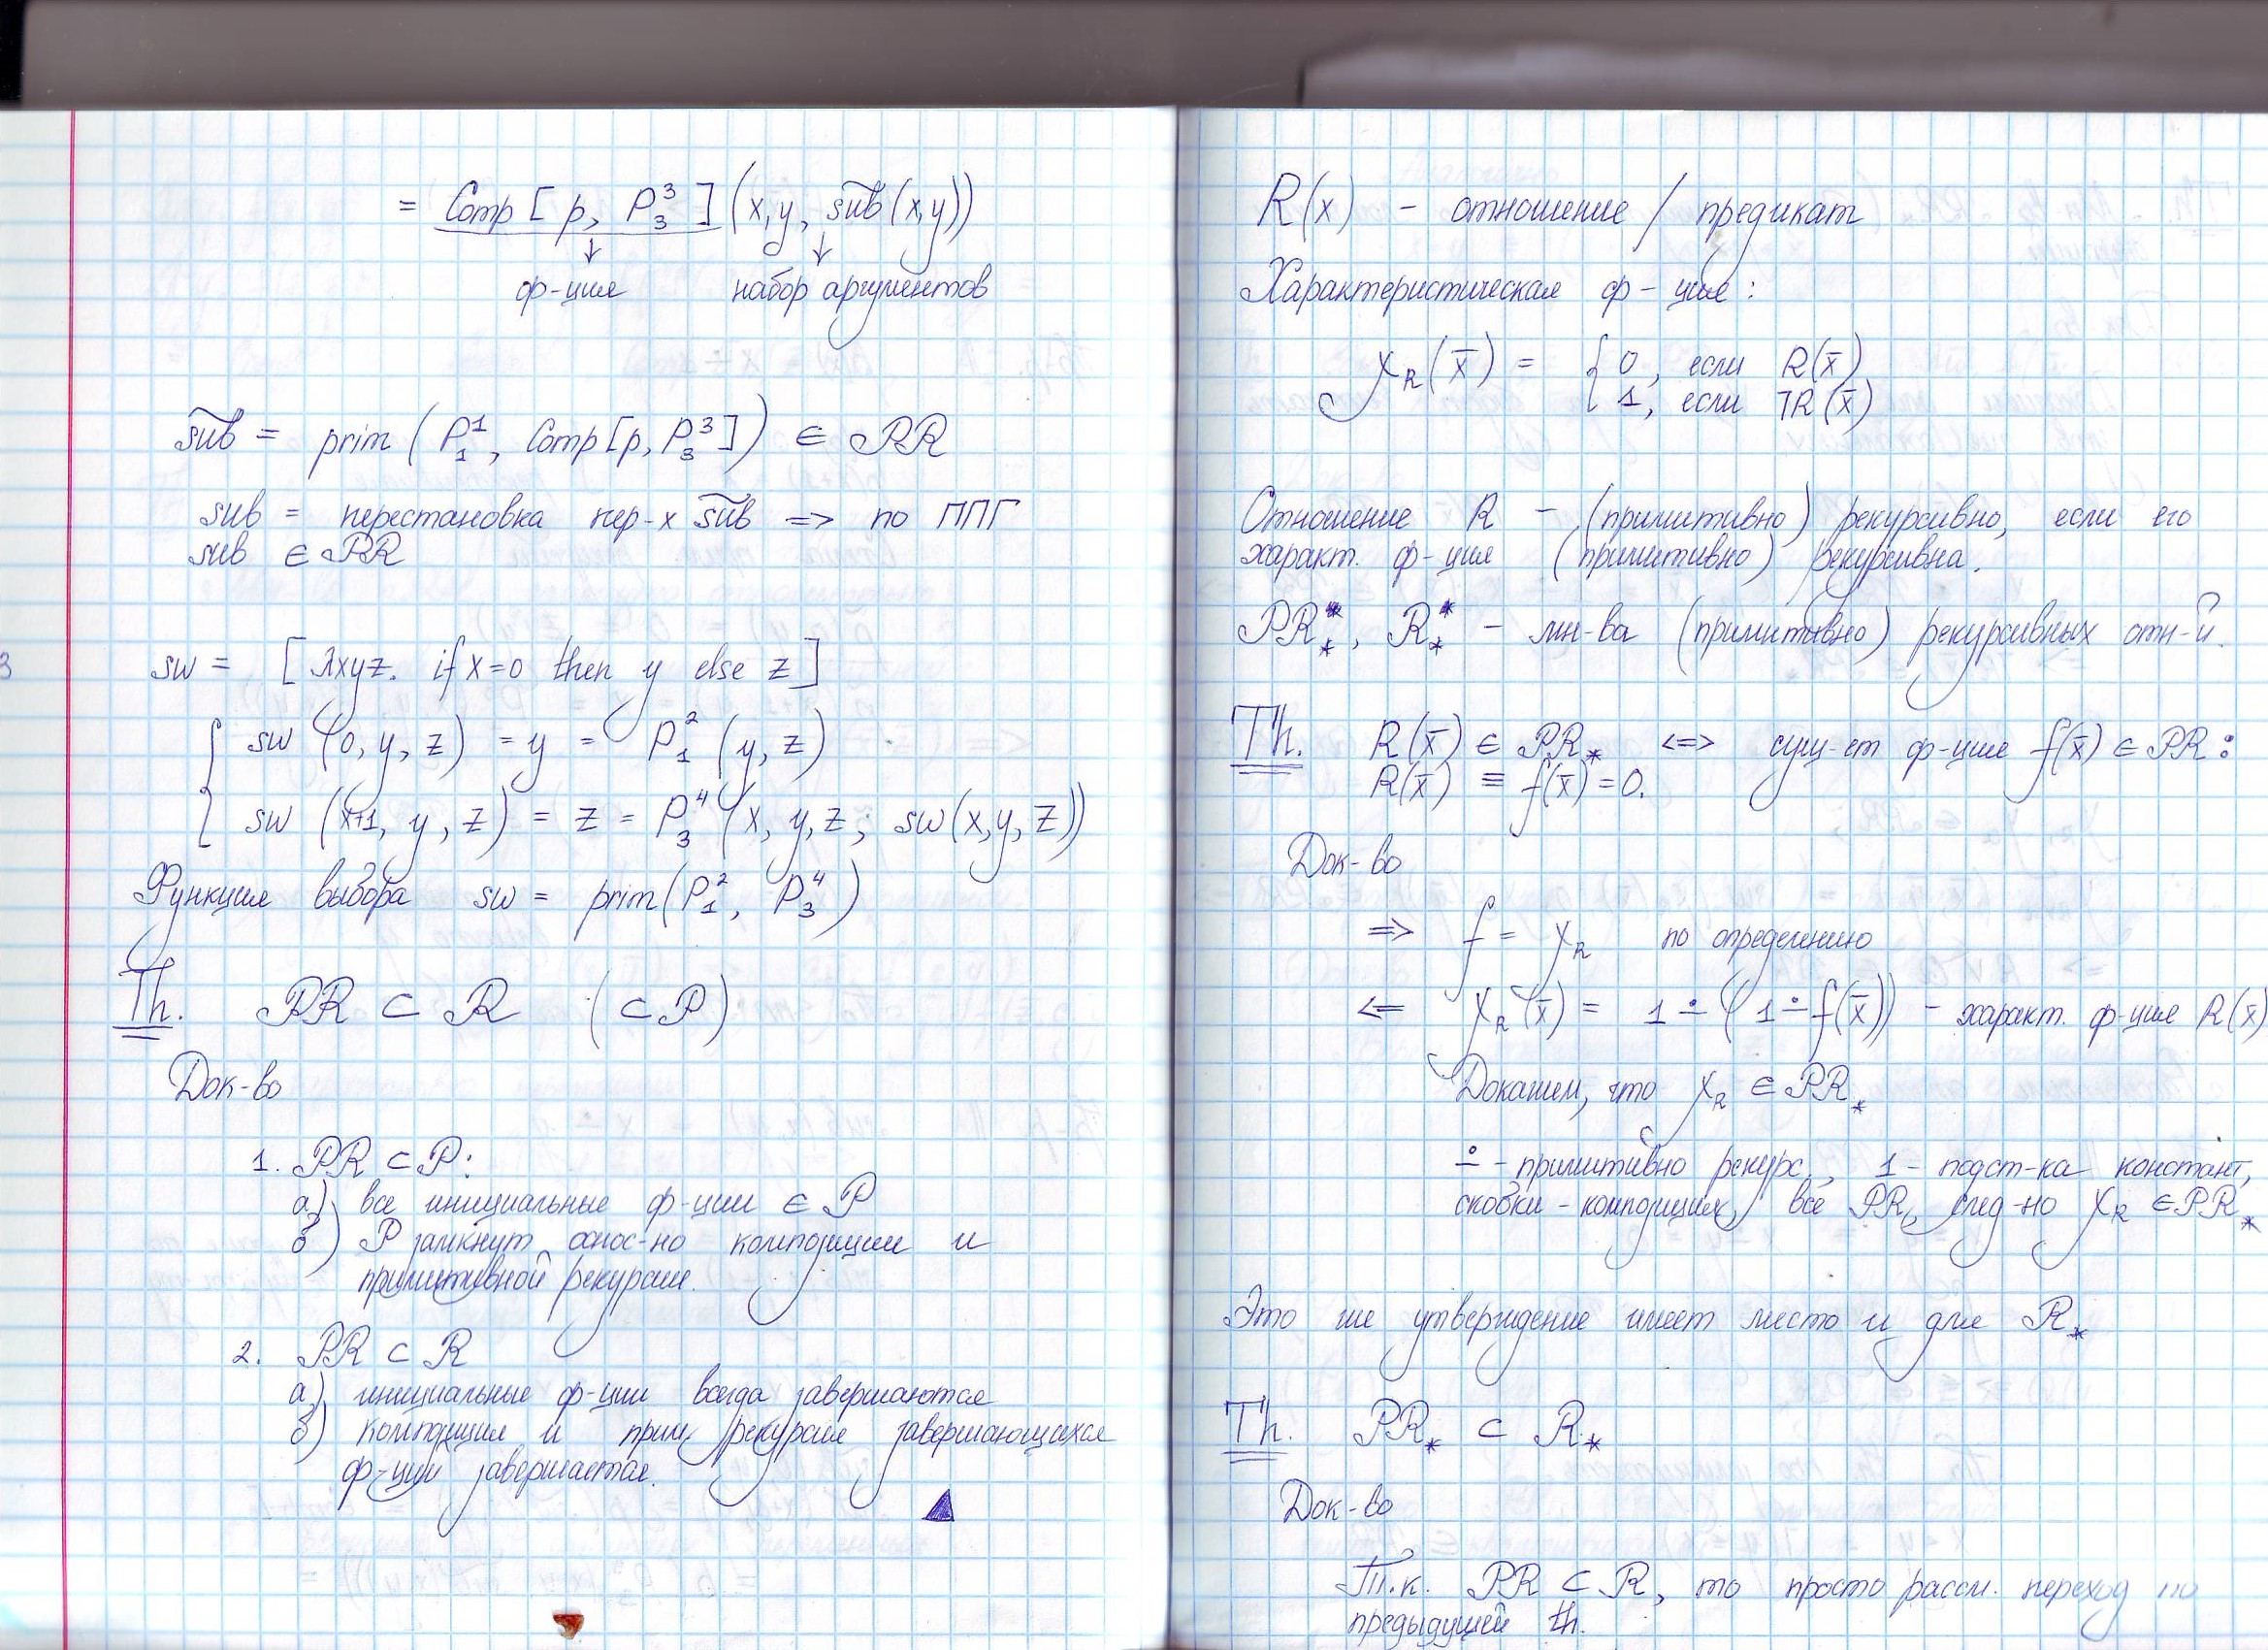 = Comp [p, P₃³] (x, y, s̃ub(x,y))
↓ ↓
ф-ция набор аргументов
s̃ub = prim (P₁¹, Comp [p, P₃³]) ∈ PR
sub = перестановка пер-х s̃ub => по ППГ
sub ∈ PR
3
sw = [λxyz. if x=0 then y else z]
{ sw (0, y, z) = y = P₁² (y, z)
sw (x+1, y, z) = z = P₃⁴ (x, y, z, sw(x,y,z))
Функция выбора sw = prim(P₁², P₃⁴)
Th. PR ⊂ R (⊂ P)
Док-во
1. PR ⊂ P:
а) все инициальные ф-ции ∈ P
б) P замкнут относ-но композиции и
примитивной рекурсии.
2. PR ⊂ R
а) инициальные ф-ции всегда завершаются
б) композиция и прим. рекурсия завершающихся
ф-ций завершается.
R(x) - отношение / предикат
Характеристическая ф-ция:
χ_R(x̄) = { 0, если R(x̄)
1, если ¬R(x̄)
Отношение R - (примитивно) рекурсивно, если его
характ. ф-ция (примитивно) рекурсивна.
PR*⁎, R*⁎ - мн-ва (примитивно) рекурсивных отн-й.
Th. R(x̄) ∈ PR⁎ <=> сущ-ет ф-ция f(x̄) ∈ PR:
R(x̄) ≡ f(x̄)=0.
Док-во
=> f = χ_R по определению
<= χ_R(x̄) = 1 ∸ (1 ∸ f(x̄)) - характ. ф-ция R(x̄)
Докажем, что χ_R ∈ PR⁎
∸ - примитивно рекурс., 1 - подст-ка констант,
скобки - композиция, все PR, след-но χ_R ∈ PR⁎
Это же утверждение имеет место и для R⁎
Th. PR⁎ ⊂ R⁎
Док-во
Т.к. PR ⊂ R, то просто рассм. переход по
предыдущей th.